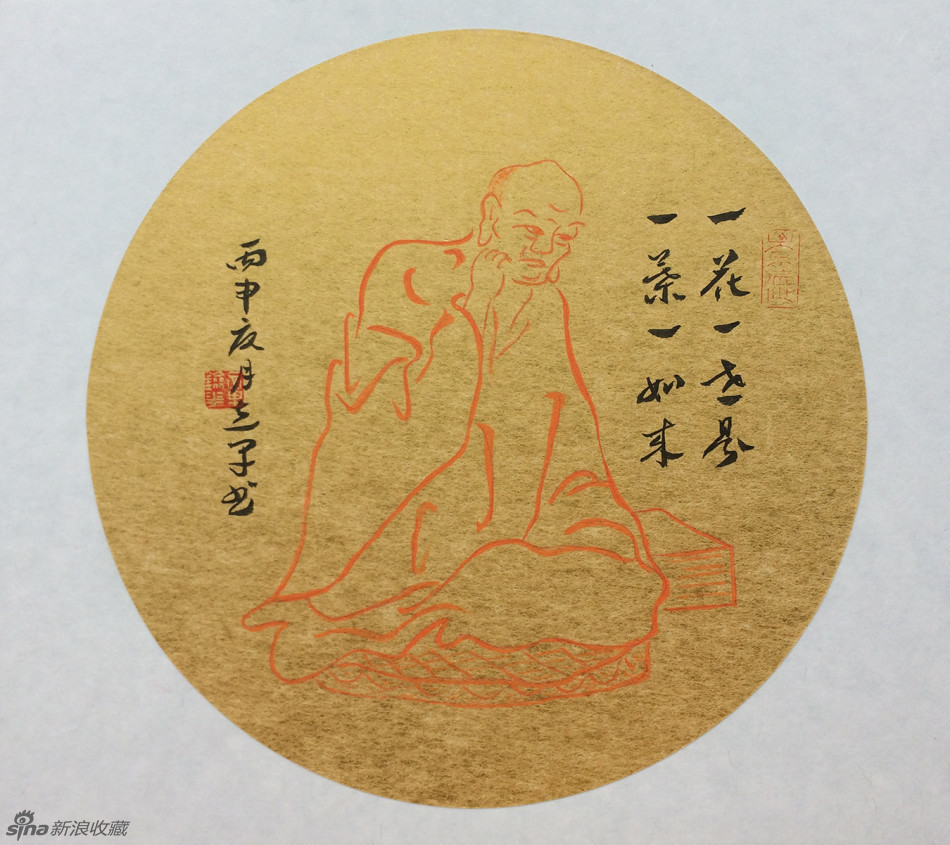 一花一世界
一葉一如来
丙申夏月书
sina新浪收藏